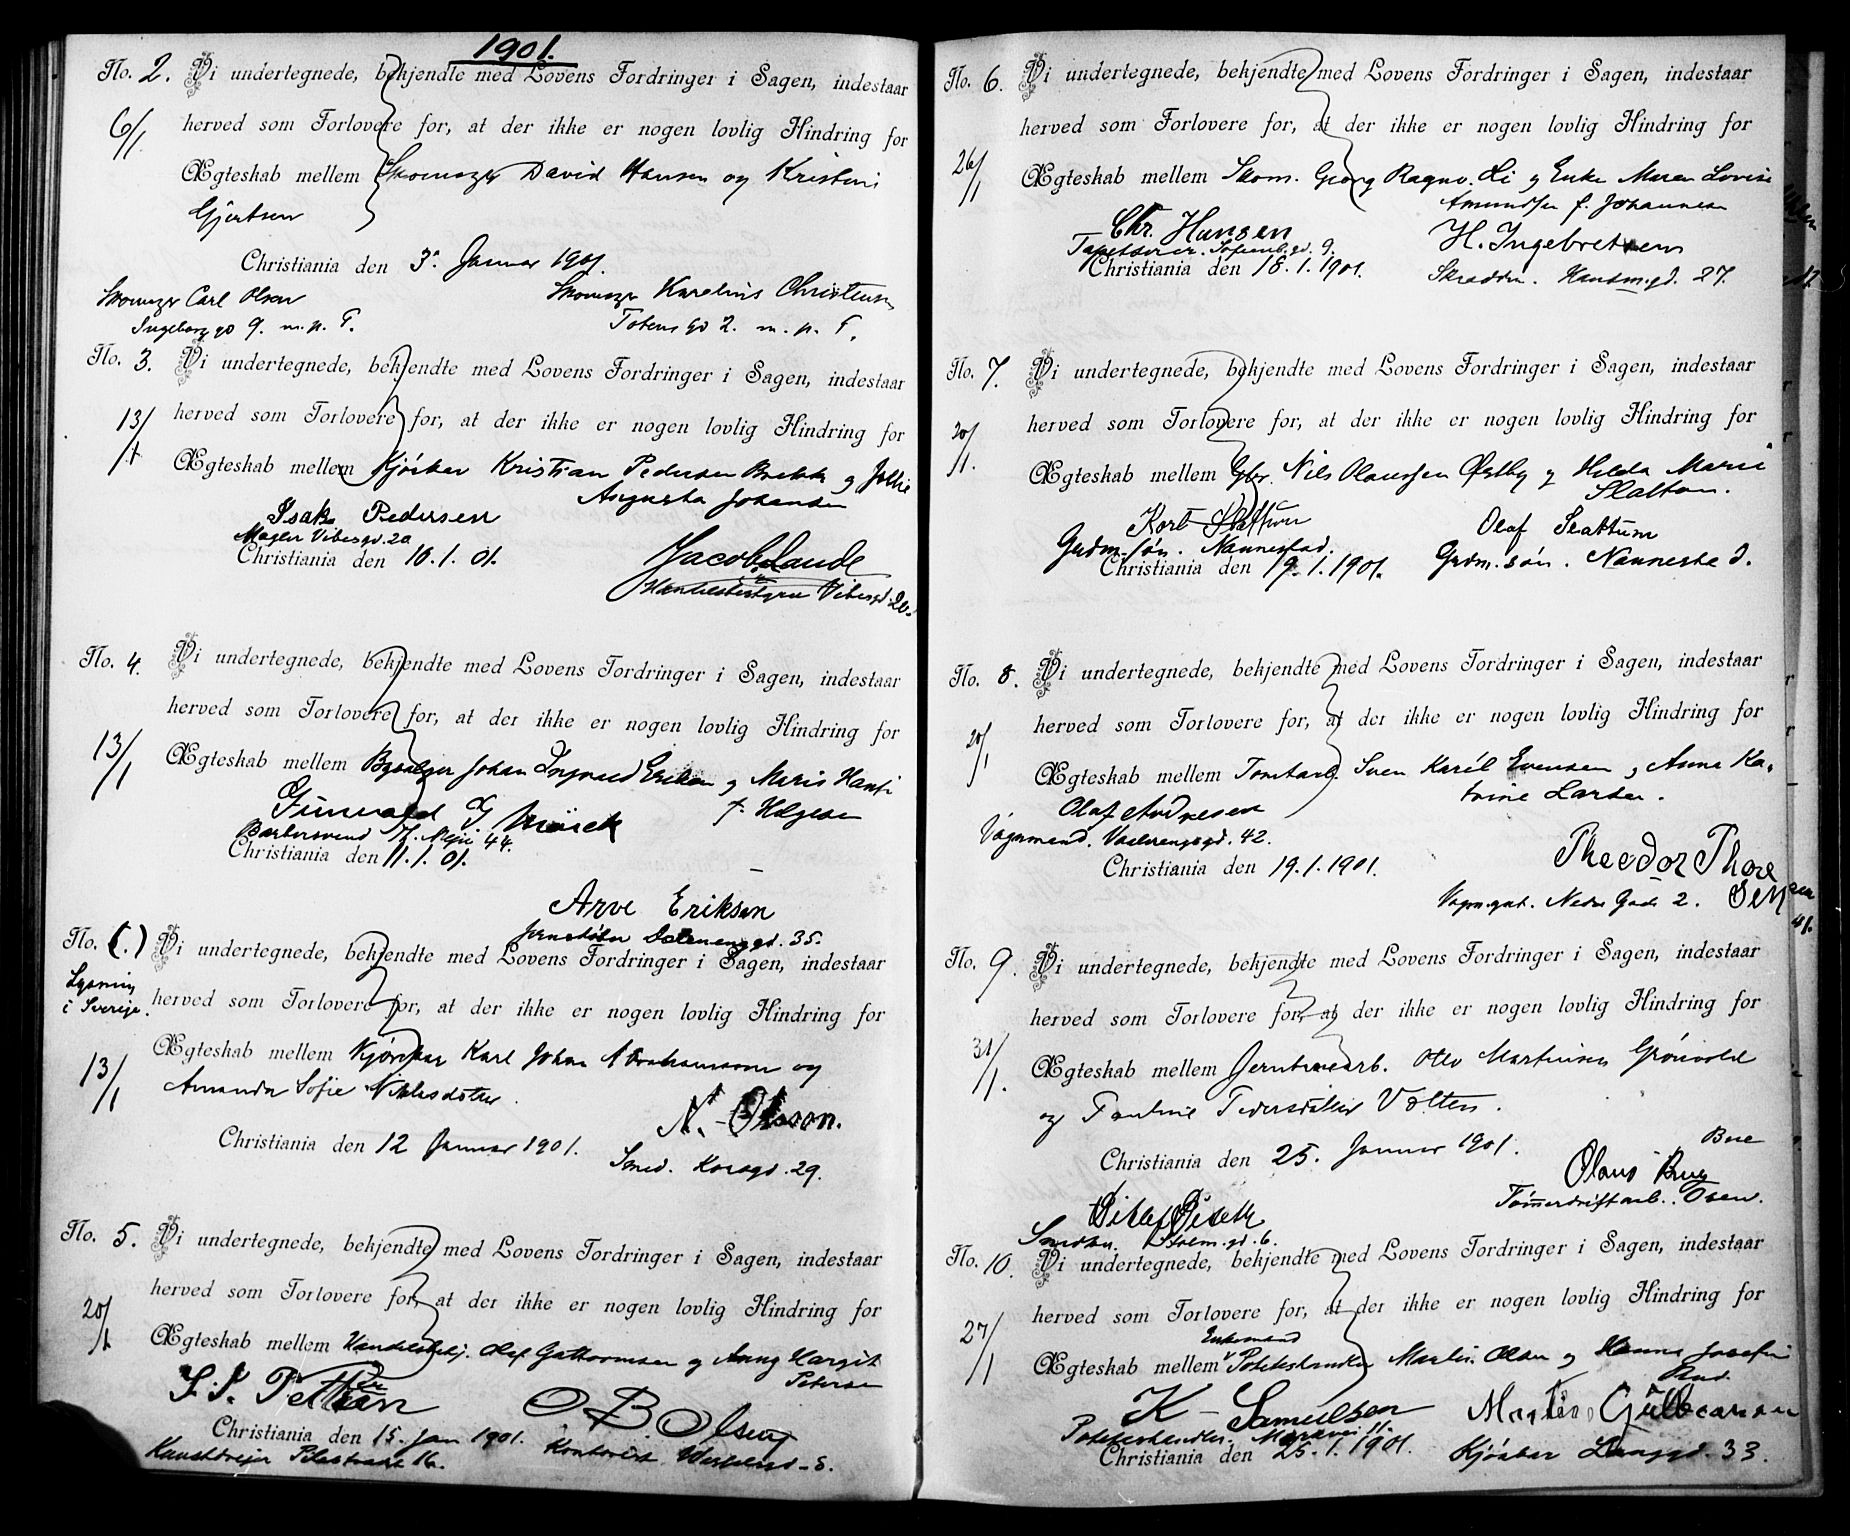 1901.
No. 2. Vi undertegnede, bekjendte med Lovens Fordringer i Sagen, indestaar
6/1. herved som Forlovere for, at der ikke er nogen lovlig Hindring for
Ægteskab mellem Skomager David Hansen og Kristine
Gjertsen
Christiania den 3. Januar 1901.
Skomager Carl Olsen
Skomager Karelius Christensen
Ingeborggd 9. m. p. F.
Totens Gd 2. m. p. F.
No. 3. Vi undertegnede, bekjendte med Lovens Fordringer i Sagen, indestaar
13/1 herved som Forlovere for, at der ikke er nogen lovlig Hindring for
Ægteskab mellem Kjøskar Kristian Pedersen Brekke og
Augusta Johansen
Isak Pedersen
Magler Vibesgd. 20
Christiania den 10. 1. 01.
Jacob Lande
Vibesgd. 20.
No. 4. Vi undertegnede, bekjendte med Lovens Fordringer i Sagen, indestaar
herved som Forlovere for, at der ikke er nogen lovlig Hindring for
13/1 Ægteskab mellem Johan Ingvald Eriksen og Marie
f. Helgesen
Gunvald G
Barbersvend 44.
Christiania den 11. 1. 01.
Arve Eriksen
35.
No. (.) Vi undertegnede, bekjendte med Lovens Fordringer i Sagen, indestaar
Lysning
i Sverige. herved som Forlovere for, at der ikke er nogen lovlig Hindring for
13/1 Ægteskab mellem Kjørekar Karl Johan Abrahamsson og
Amanda Sofie Niklasdotter.
N. Olsson.
Christiania den 12 Januar 1901.
Smed. Korsgd. 29.
No. 5. Vi undertegnede, bekjendte med Lovens Fordringer i Sagen, indestaar
20/1 herved som Forlovere for, at der ikke er nogen lovlig Hindring for
Ægteskab mellem Handelsbetj. Olaf Guttormsen og Anny Margit
Petersen
O B Olsen
Christiania den 15. Jan 1901.
Pilestrædet 16.
Kontorist
No. 6. Vi undertegnede, bekjendte med Lovens Fordringer i Sagen, indestaar
herved som Forlovere for, at der ikke er nogen lovlig Hindring for
26/1 Ægteskab mellem Skom. Georg Ragnv. Li og Enke Maren Lovise
Amundsen f. Johannesen
Chr. Hansen
H. Ingebretsen
Tapetserer. Sofienb.gd. 9.
Christiania den 18. 1. 1901.
Skrædder. Hausm.gd. 27.
No. 7. Vi undertegnede, bekjendte med Lovens Fordringer i Sagen, indestaar
20/1. herved som Forlovere for, at der ikke er nogen lovlig Hindring for
Ægteskab mellem Gbr. Nils Olaussen Østby og Hilda Marie
Slattum.
Kort Slattum
Olaf Slattum
Grdm. søn. Nannestad.
Christiania den 19. 1. 1901.
Grdm. søn. Nannestad.
No. 8. Vi undertegnede, bekjendte med Lovens Fordringer i Sagen, indestaar
20/1 herved som Forlovere for, at der ikke er nogen lovlig Hindring for
Ægteskab mellem Tomtarb. Sven Karél Evensen og Anna Ka-
trine Larsen.
Olaf Andresen
Vognmand. Vaalerengsgd. 42.
Christiania den 19. 1. 1901.
Theodor Thore
Sen
Vognmd. Nedre Gade 2.
No. 9. Vi undertegnede, bekjendte med Lovens Fordringer i Sagen, indestaar
herved som Forlovere for, at der ikke er nogen lovlig Hindring for
31/1. Ægteskab mellem Jernbanearb. Otto Martinius Grönvold
og Pauline Pedersdatter Volten.
Christiania den 25. Januar 1901.
Olaus
Tømmerdriftarb. Osen.
Holm.gd. 6.
No. 10. Vi undertegnede, bekjendte med Lovens Fordringer i Sagen, indestaar
herved som Forlovere for, at der ikke er nogen lovlig Hindring for
27/1 Enkemand
Ægteskab mellem Poteteshandler Martin Olsen og Hanna Josefine
Rud.
K. Samuelsen
Martin Gulbransen
Poteteshandler. Markvei 11.
Christiania den 25. 1. 1901.
Kjøskar Langgd. 33.